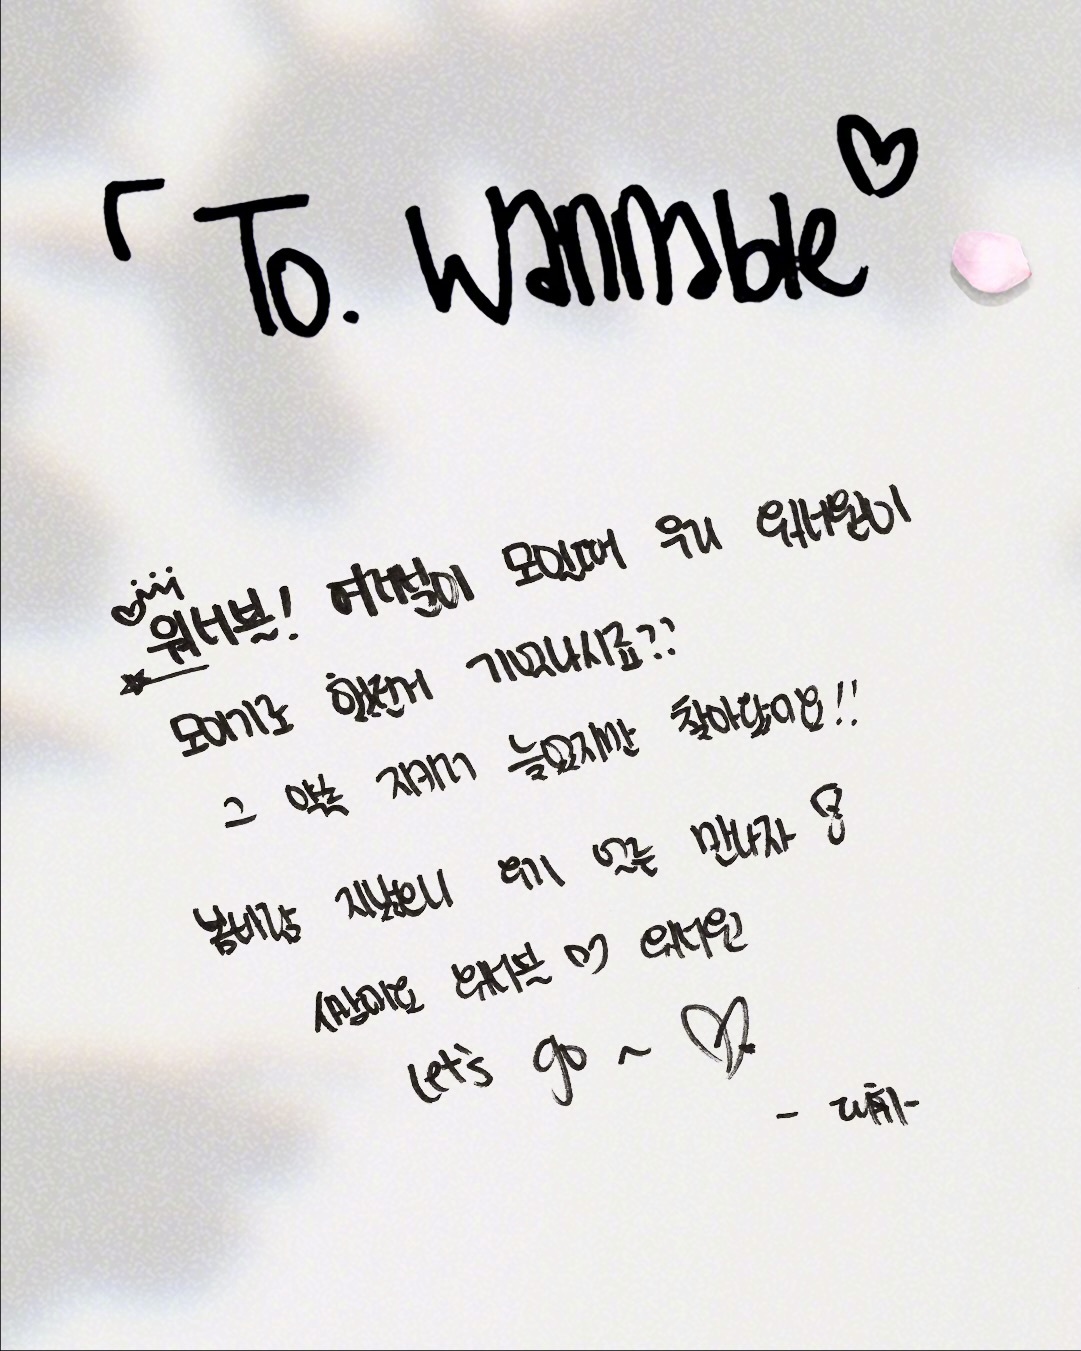 「 To. Wannable ♡
워너블! 여러분이 모일때 우리 워너원이
모이기로 했던거 기억나시죠??
그 약속 지키러 늦었지만 찾아왔어요!!
봄바람 지났으니 우리 인쟈 만나자
사랑해요 워너블 ♡ 워너원
Let's go ~ ♡
- 대휘-